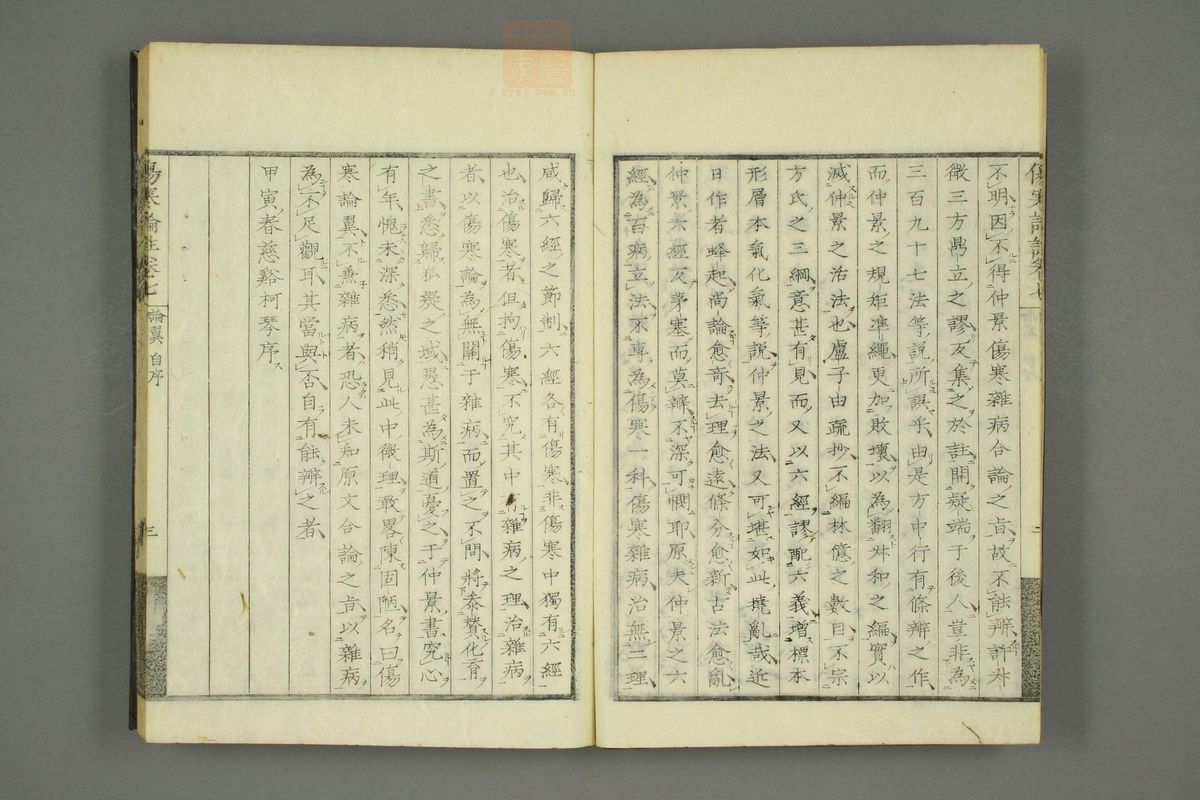 不明因不得仲景傷寒雜病合論之旨故不能辨許叔
微三方鼎立之謬反集之於註開疑端于後人豈非為
三百九十七法等説所誤乎由是方中行有條辨之作
而仲景之規矩準繩更加敗壞以為翻叔和之編實以
滅仲景之活法也盧子由疏抄不編林億之數目不宗
方氏之三綱意甚有見而又以六經謬配六義增標本
形層本氣化氣等説仲景之法又可堪如此撓亂哉近
日作者蜂起尚論愈奇去理愈遠條分愈新古法愈亂
仲景六經反茅塞而莫辨不深可憫耶原夫仲景之六
經為百病立法不專為傷寒一科傷寒雜病治無二理
咸歸六經之節制六經各有傷寒非傷寒中獨有六經
也治傷寒者但拘傷寒不究其中有雜病之理治雜病
者以傷寒論為無關于雜病而置之不問將參賛化育
之書悉歸狐疑之域愚甚為斯道憂之于仲景書究心
有年愧未深悉然稍見此中微理敢畧陳固陋名曰傷
寒論翼不兼雜病者恐人未知原文合論之旨以雜病
為不足觀耳其當與否自有能辨之者
甲寅春慈谿柯琴序
傷寒論註卷七
論翼 自序
三